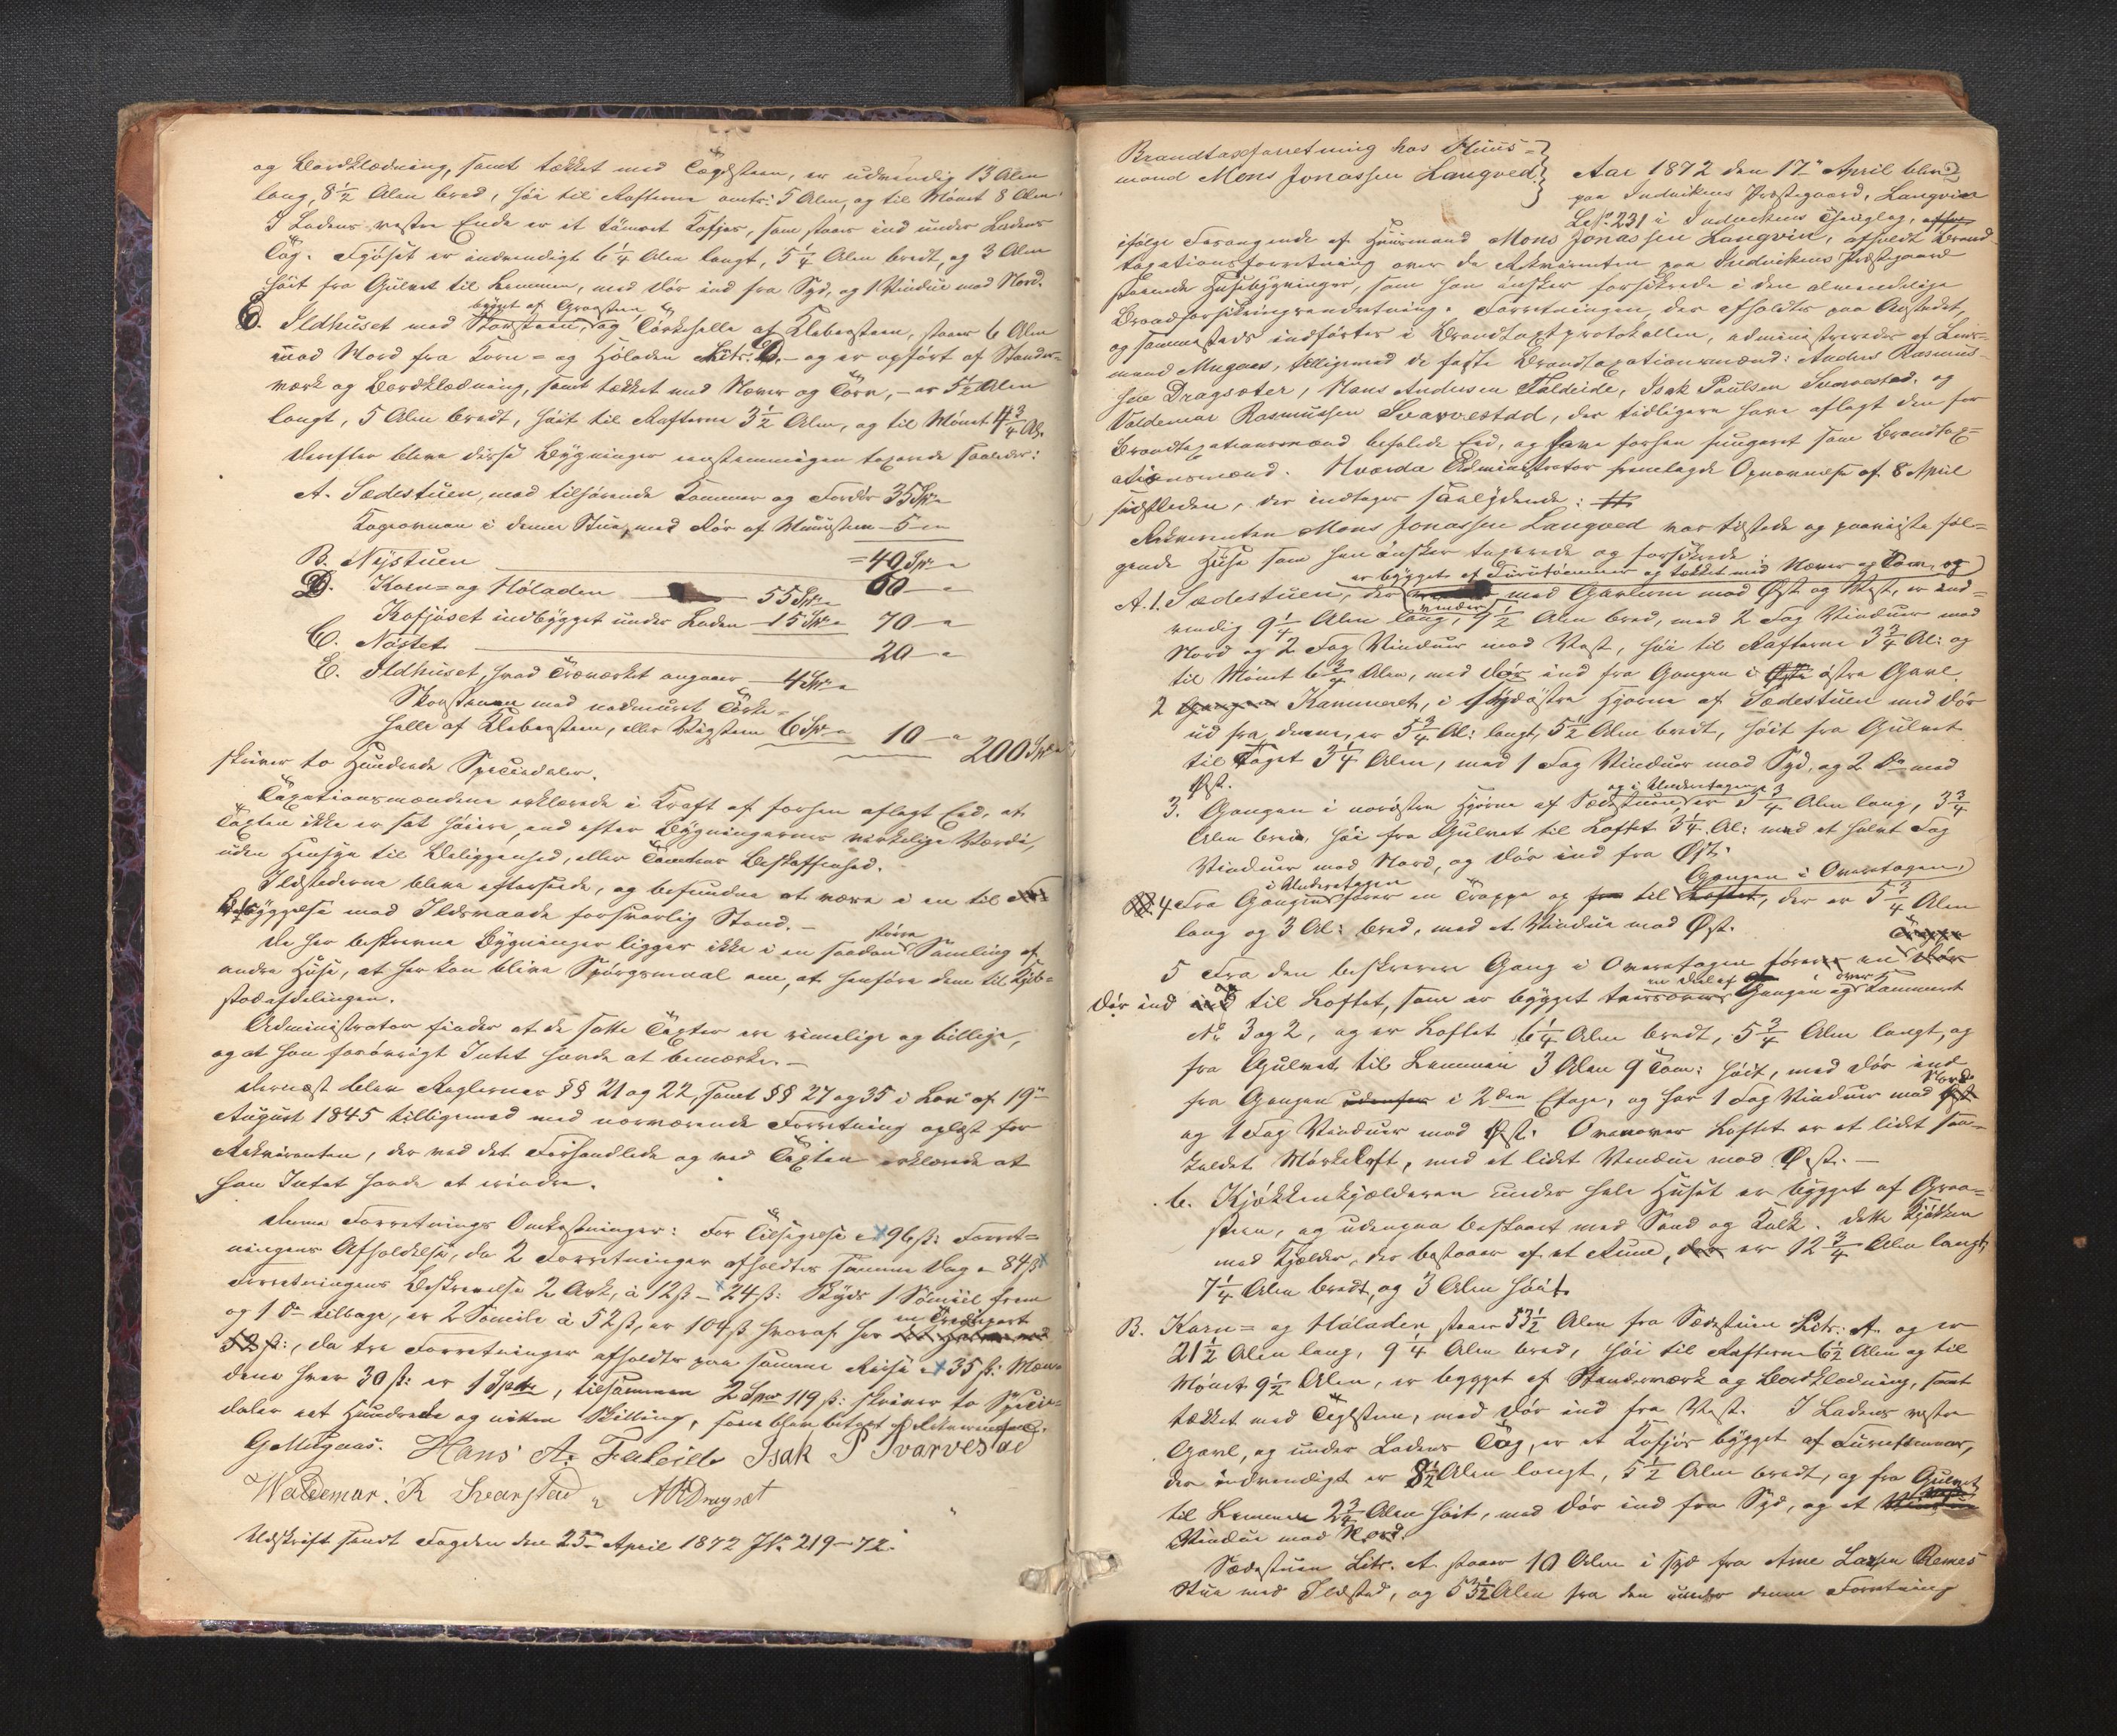 og Bordklædning, samt tækket med Tagsteen, er udvendig 13 Alen
lang, 8 1/2 Alen bred, høi til Rafterne omtr: 5 Alen, og til Mønet 8 Alen.
I Ladens vestre Ende er et tømret Kofjøs, som staar ind under Ladens
Tag. Fjøset er indvendigt 6 1/4 Alen langt, 5 1/4 Alen bredt, og 3 Alen
høit fra Gulvet til Lemmen, med Dør ind fra Syd, og 1 Vindue mod Nord.
bygget af Graasteen
E. Ildhuset med Skorsteen, og Tørkehelle af Klebersteen, staar 6 Alen
mod Nord fra Korn- og Høladen Litr. D. - og er opført af Stander-
værk og Bordklædning, samt tækket med Næver og Torv, - er 5 1/2 Alen
langt, 5 Alen bredt, høit til Rafterne 3 1/2 Alen, og til Mønet 4 3/4 Al.
Derefter bleve disse Bygninger eenstemmigen taxerede saaledes:
A. Sædestuen, med tilhørende Kammer og Fordør 35 Spd
Kogeovnen i denne Stue, med Rør af Muursteen 5 -
= 40 Spd
B. Nystuen 60 -
D. Korn- og Høladen 55 Spd
Kofjøset indbygget under Laden 15 Spd 70 -
C. Nøstet 20 -
E. Ildhuset, hvad Træværket angaaer 4 Spd
Skorstenen med vedmuret Tørke-
helle af Klebersteen, eller Vegsteen 6 Spd 10 - 200 Spd
skriver to Hundrede Speciedaler.
Taxationsmændene erklærede i Kraft af forhen aflagt Eed, at
Taxten ikke er sat høiere, end efter Bygningernes virkelige Værdi,
uden Hensyn til Beliggenhed, eller Tomtens Beskaffenhed.
Ildstederne bleve efterseede, og befundne at være i en til
Betryggelse mod Ildsvaade forsvarlig Stand. -
større
De her beskrevne Bygninger ligger ikke i en saadan Samling af
andre Huse, at her kan blive Spørgsmaal om, at henføre dem til Kjøb-
stadafdelingen.
Administrator finder at de satte Taxter ere rimelige og billige,
og at han forøvrigt Intet havde at bemærke. -
Dernæst blev Reglerne §§ 21 og 22, samt §§ 27 og 35 i Lov af 19de
August 1845 tilligemed nærværende Forretning oplæst for
Rekvirenten, der ved det Forhandlede og ved Taxten erklærede at
han Intet havde at erindre.
Denne Forretnings Omkostninger: For Tilsigelse 96 ß: Forret-
ningens Afholdelse, da 2 Forretninger afholdtes samme Dag - 84 ß
Forretningens Beskrivelse 2 Ark, à 12 ß - 24 ß: Skyds 1 Sømiil frem
og 1 Do tilbage, er 2 Sømile à 52 ß, er 104 ß hvoraf her en Trediepart
52 ß:, da tre Forretninger afholdtes paa samme Reise 35 ß: Mæn-
dene hver 30 ß: er 1 Spd, tilsammen 2 Spd 119 ß: skriver to Specie-
daler eet Hundrede og nitten Skilling, som blev betalt af Rekvirenten.
G. Mugaas. Hans A. Faleide Isak P Svarvestad
Waldemar. R Svarstad A R Dragsæt
Udskrift sendt Fogden den 25de April 1872 JN. 219-72.
Brandtaxforretning hos Huus-
mand Mons Jonassen Langved.
Aar 1872 den 17de April blev
paa Indvikens Præstegaard, Langvin
LNo 231 i Indvikens Thinglag,
ifølge Forlangende af Huusmand Mons Jonassen Langvin, afholdt Brand-
taxationsforretning over de Rekvirenten paa Indvikens Præstegaard
staaende Huusebygninger, som han ønsker forsikrede i den almindelige
Brandforsikringsindretning. Forretningen, der afholdtes paa Aastedet,
og sammesteds indførtes i Brandtaxtprotokollen, administreredes af Lens-
mand Mugaas, tilligemed de faste Brandtaxationsmænd: Anders Rasmus-
sen Dragsæter, Hans Andersen Faleide, Isak Paulsen Svarvestad, og
Valdemar Rasmussen Svarvestad, der tidligere have aflagt den for
Brandtaxationsmænd befalede Eed, og have forhen fungeret som Brandtax-
ationsmænd. Hvorda Administrator fremlagde Opnævnelse af 8 April
sidstleden, der indtages saalydende: #
Rekvirenten Mons Jonassen Langved var tilstede og paaviste føl-
gende Huse som han ønsker taxerede og forsikrede:
er bygget af Furutømmer og tækket med Næver og Torv, og
A. 1. Sædestuen, der vender med Gavlerne mod Øst og Vest, er ind-
vendig 9 1/4 Alen lang, 9 1/2 Alen bred, med 2 Fag Vinduer mod
Nord og 2 Fag Vinduer mod Vest, høi til Rafterne 3 3/4 Al: og
til Mønet 6 3/4 Alen, med Dør ind fra Gangen i østre Gavl.
2 Kammeret, i sydøstre Hjørne af Sædestuen med Dør
ud fra denne, er 5 3/4 Al: langt, 5 1/2 Alen bredt, høit fra Gulvet
til Taget 3 1/4 Alen, med 1 Fag Vinduer mod Syd, og 2 Do mod
Øst.
og i Underetagen
3. Gangen i nordøstre Hjørne af Sædestuen er 5 3/4 Alen lang, 3 3/4
Alen bred, høi fra Gulvet til Loftet 3 1/4 Al: med et halvt Fag
Vinduer mod Nord, og Dør ind fra Øst.
i Underetagen Gangen i Overetagen,
4 Fra Gangen fører en Trappe op til Loftet, der er 5 3/4 Alen
lang og 3 Al: bred, med et Vindue mod Øst.
5 Fra den beskrevne Gang i Overetagen fører en
Dør ind til Loftet, som er bygget en Deel af Gangen og over Kammeret
No 3 og 2, og er Loftet 6 1/4 Alen bredt, 5 3/4 Alen langt, og
fra Gulvet til Lemmen 3 Alen 9 Tom: høit, med Dør ind
fra Gangen i 2den Etage, og har 1 Fag Vinduer mod Nord
og 1 Fag Vinduer mod Øst. Ovenover Loftet er et lidet saa-
kaldet Mørkeloft, med et lidet Vindue mod Øst. -
6. Kjøkkenkjælderen under hele Huset er bygget af Graa-
steen, og udenpaa beslaaet med Sand og Kalk. Dette Kjøkken
med Kjelder, der bestaaer af et Rum, er 12 3/4 Alen langt,
7 1/4 Alen bredt, og 3 Alen høit.
B. Korn- og Høladen staaer 53 1/2 Alen fra Sædestuen Litr. A. og er
21 1/2 Alen lang, 9 1/4 Alen bred, høi til Rafterne 6 1/2 Alen og til
Mønet 9 1/2 Alen, er bygget af Standerværk og Bordklædning, samt
tækket med Tagsteen, med Dør ind fra Vest. I Ladens vestre
Gavl, og under Ladens Tag, er et Kofjøs bygget af Furutømmer,
der indvendigt er 8 1/2 Alen langt, 5 1/2 Alen bredt, og fra Gulvet
til Lemmen 2 3/4 Alen høit, med Dør ind fra Syd, og et
Vindue mod Nord.
Sædestuen Litr. A staaer 10 Alen i Syd fra Arne Larsen Remes
Stue med Ildsted, og 53 1/2 Alen fra den under denne Forretning